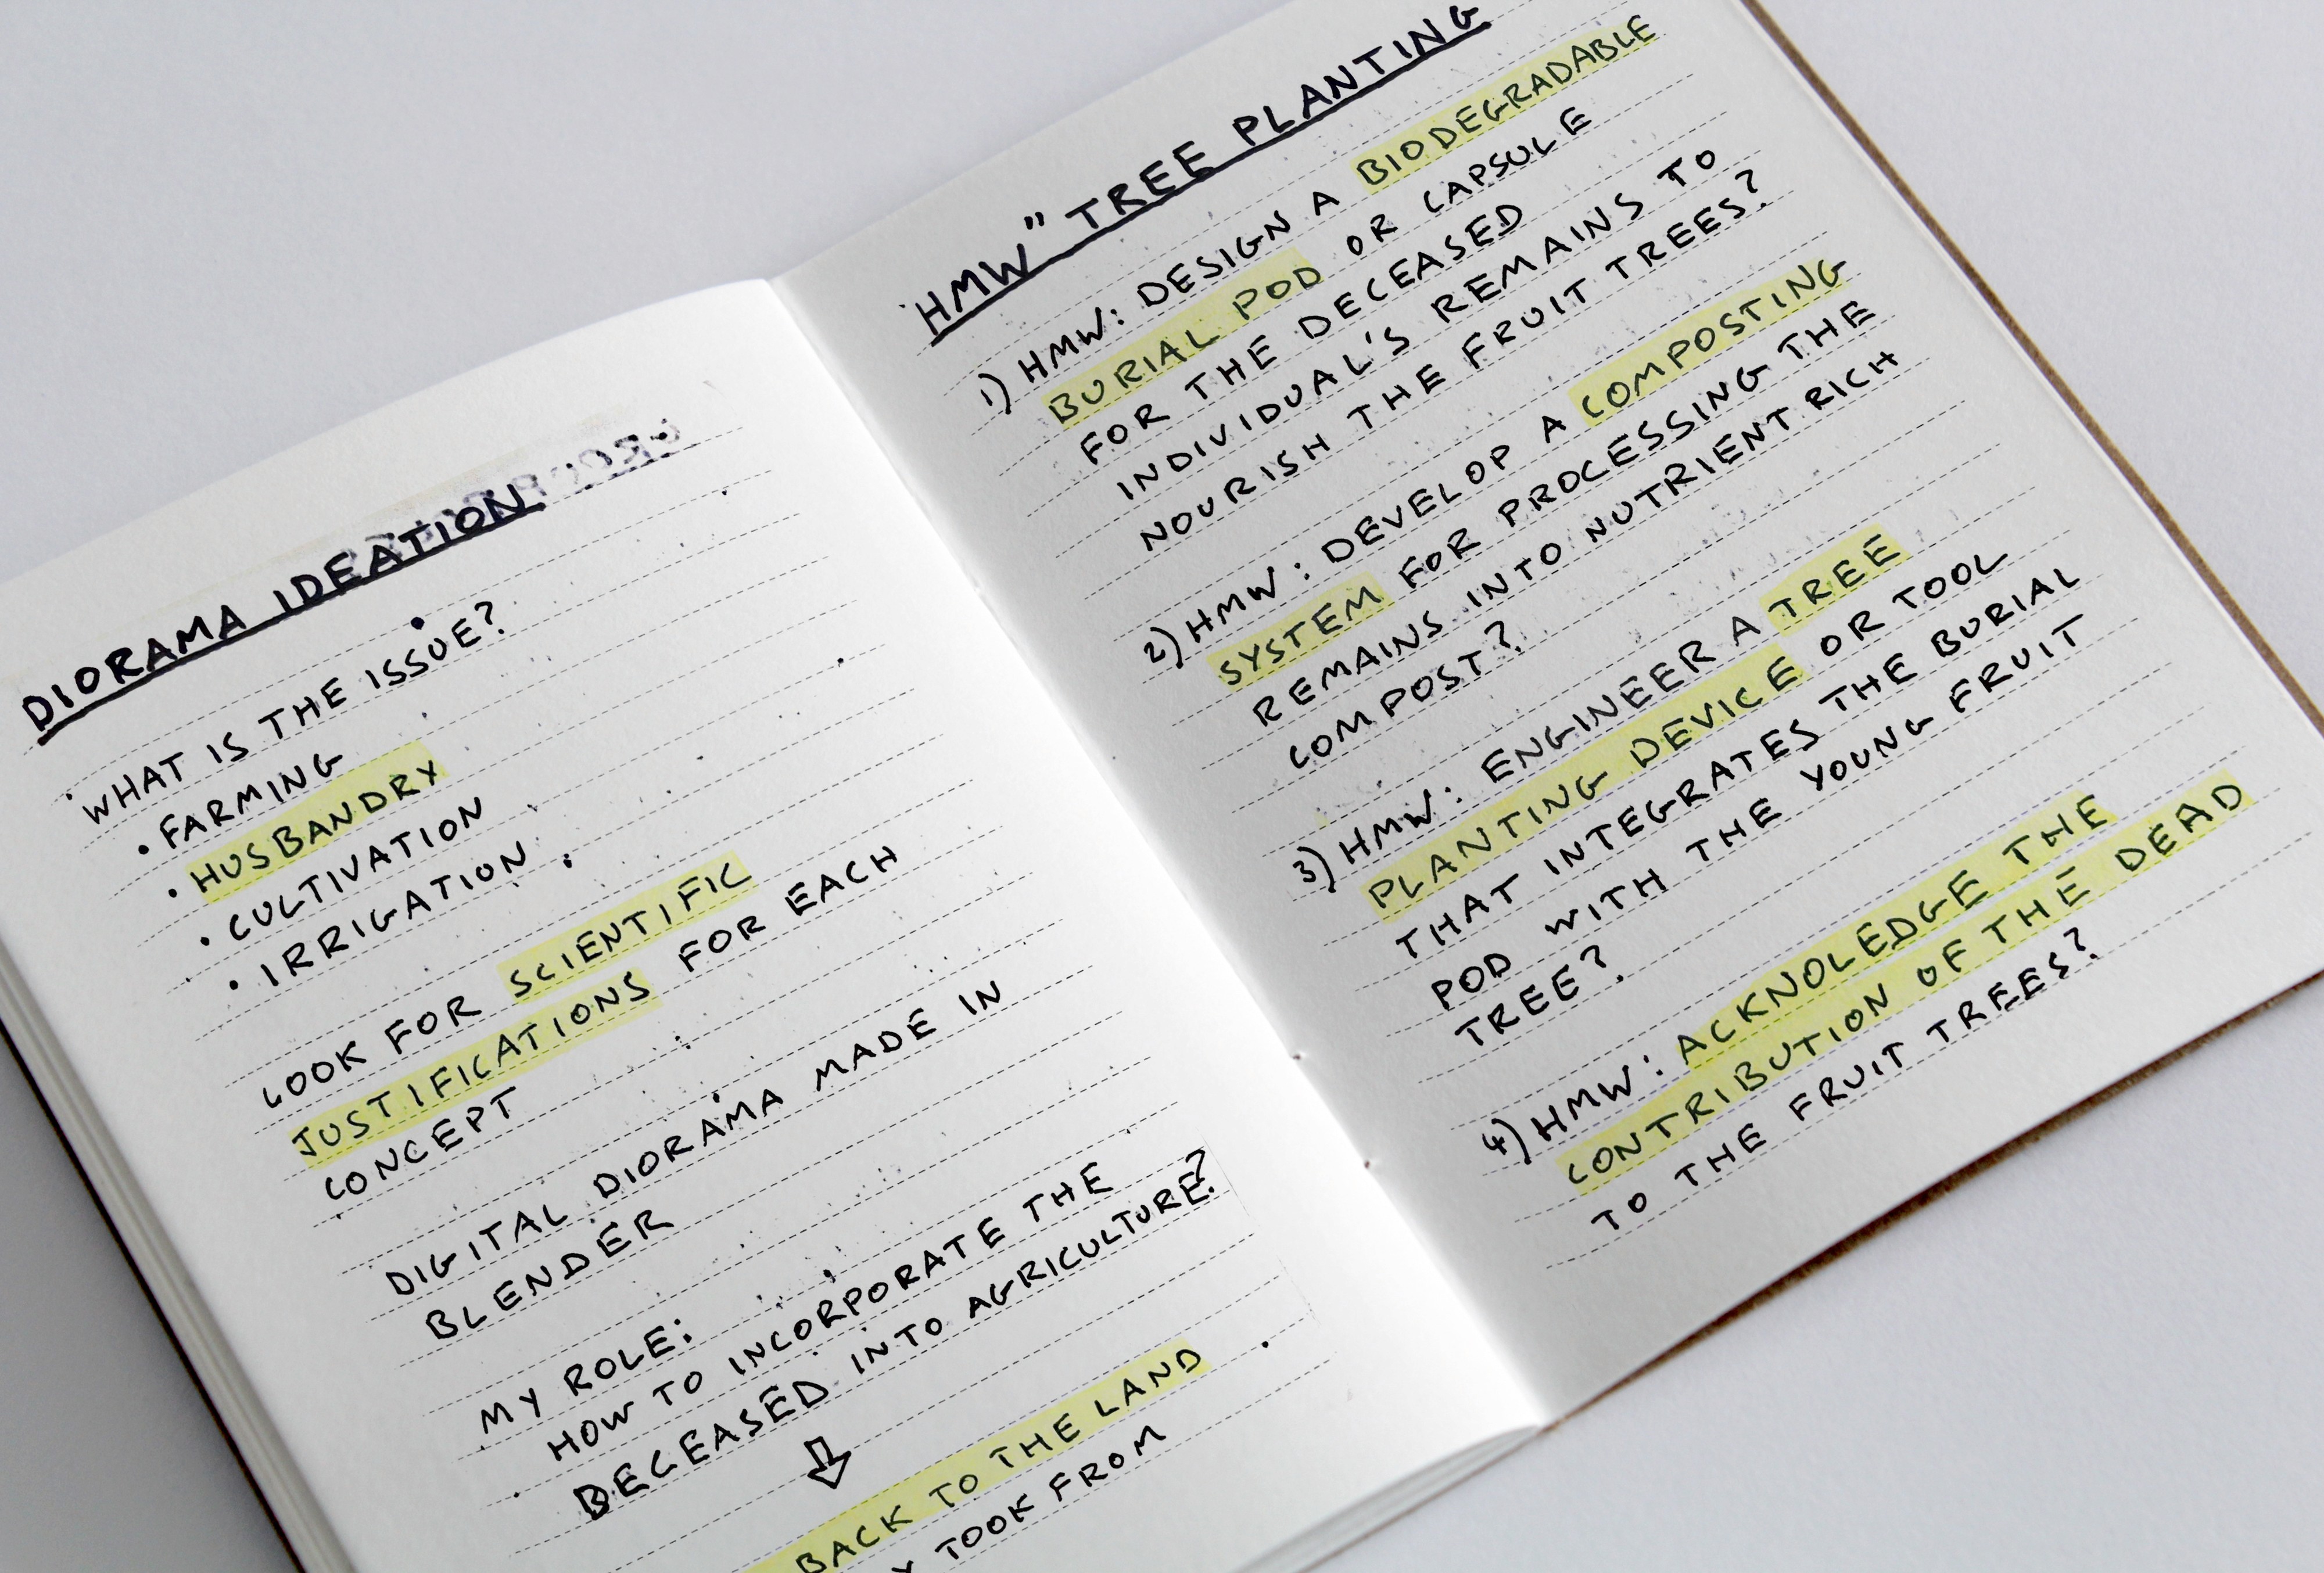 DIORAMA IDEATION
WHAT IS THE ISSUE?
• FARMING
• HUSBANDRY
• CULTIVATION
• IRRIGATION
LOOK FOR SCIENTIFIC
JUSTIFICATIONS FOR EACH
CONCEPT
DIGITAL DIORAMA MADE IN
BLENDER
MY ROLE:
HOW TO INCORPORATE THE
DECEASED INTO AGRICULTURE?
⇩
BACK TO THE LAND
TOOK FROM
"HMW" TREE PLANTING
1) HMW: DESIGN A BIODEGRADABLE
BURIAL POD OR CAPSULE
FOR THE DECEASED
INDIVIDUAL'S REMAINS TO
NOURISH THE FRUIT TREES?
2) HMW: DEVELOP A COMPOSTING
SYSTEM FOR PROCESSING THE
REMAINS INTO NUTRIENT RICH
COMPOST?
3) HMW: ENGINEER A TREE
PLANTING DEVICE OR TOOL
THAT INTEGRATES THE BURIAL
POD WITH THE YOUNG FRUIT
TREE?
4) HMW: ACKNOLEDGE THE
CONTRIBUTION OF THE DEAD
TO THE FRUIT TREES?